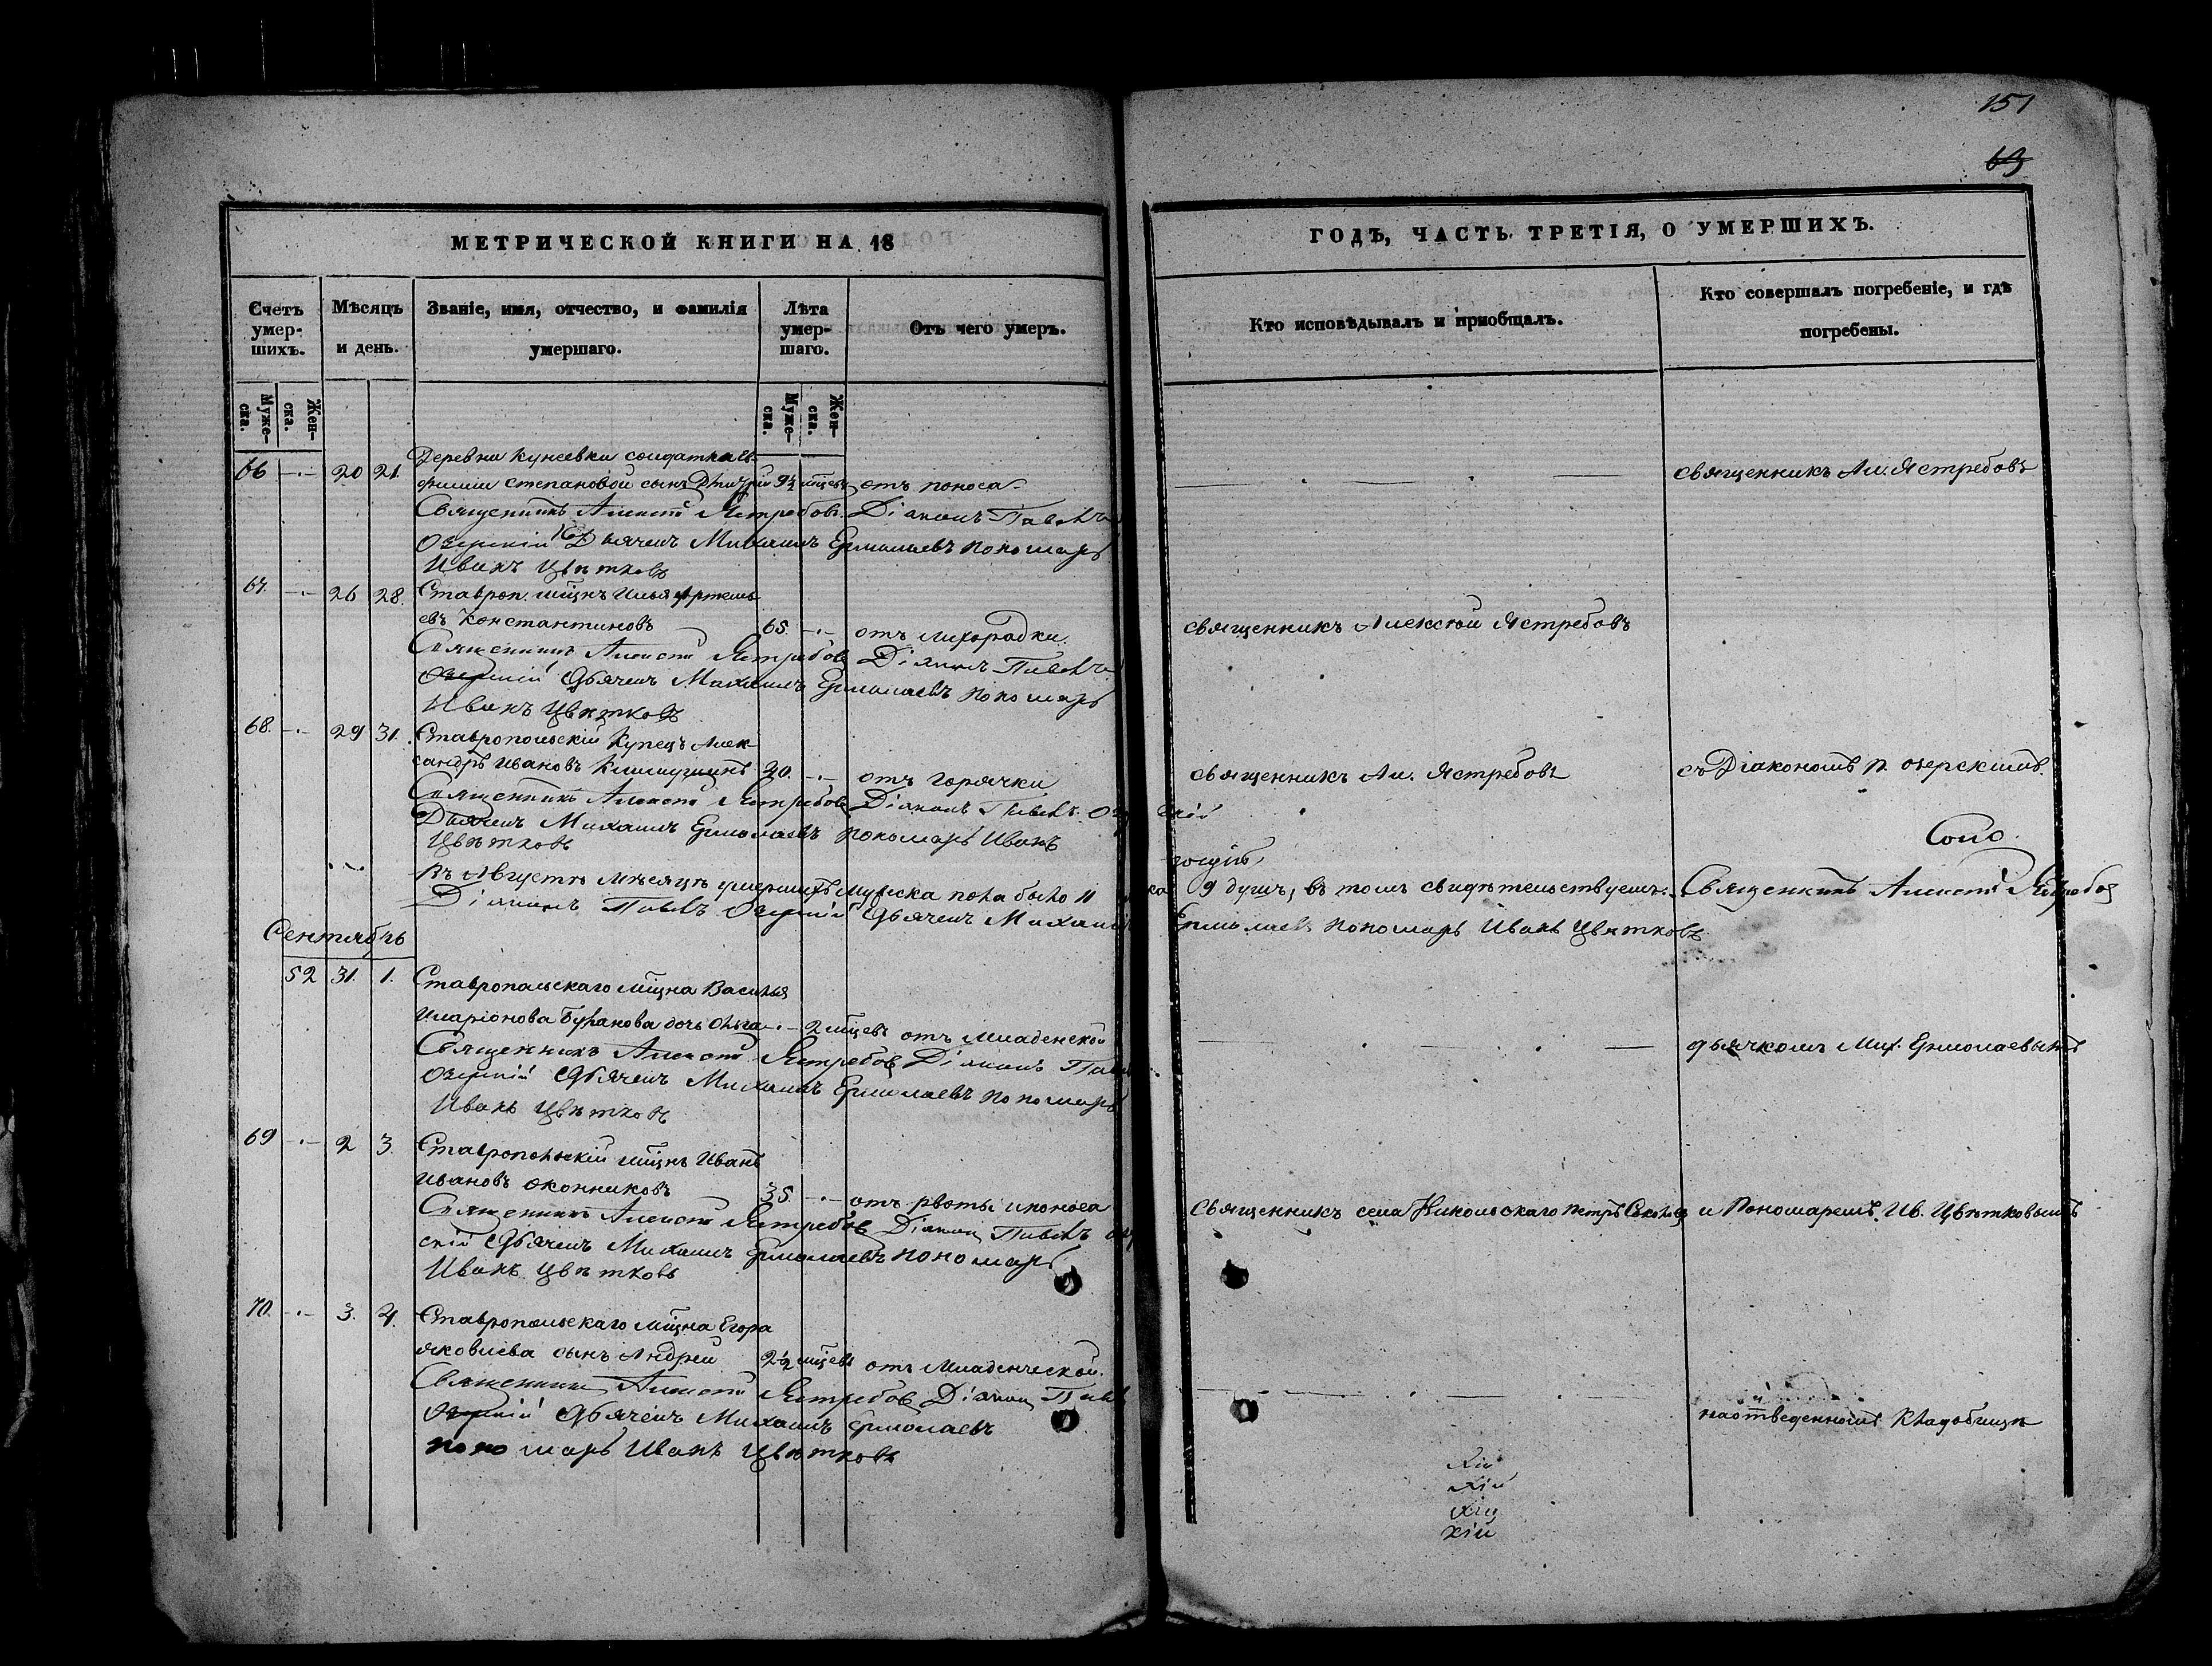 151
63
МЕТРИЧЕСКОЙ КНИГИ НА 18
ГОДЪ, ЧАСТЬ ТРЕТІЯ, О УМЕРШИХЪ.
Счетъ умер-шихъ.
Мѣсяцъ и день.
Званіе, имя, отчество, и фамилія умершаго.
Лѣта умер-шаго.
Отъ чего умеръ.
Кто исповѣдывалъ и приобщалъ.
Кто совершалъ погребеніе, и гдѣ погребены.
Муже-ска.
Жен-ска.
Муже-ска.
Жен-ска.
Деревни Кунеевки солдатки Ев-
66 20 21. фиміи Степановой сынъ Дмитрій 9½ мцевъ отъ поноса Священникъ Ал. Ястребовъ
Священникъ Алексій Ястребовъ. Діаконъ Павелъ
Озерскій Дьячекъ Михаилъ Ермолаевъ пономарь
Иванъ Цвѣтковъ
67. 26 28. Ставроп. мщнъ Илья Артемь-
евъ Константиновъ 65. отъ лихорадки. священникъ Алексій Ястребовъ
Священникъ Алексій Ястребовъ Діаконъ Павелъ
Озерскій Дьячекъ Михаилъ Ермолаевъ пономарь
Иванъ Цвѣтковъ
68. 29 31. Ставропольскій Купецъ Алек-
сандръ Ивановъ 20. отъ горячки священникъ Ал. Ястребовъ съ Діакономъ П. Озерскимъ.
Священникъ Алексій Ястребовъ Діаконъ Павелъ Озерскій
Дьячекъ Михаилъ Ермолаевъ пономарь Иванъ
Цвѣтковъ
Въ Августѣ мѣсяцѣ умершихъ мужеска пола было 11 9 душъ, въ томъ свидѣтельствуемъ: Священникъ Алексій Ястребовъ
Діаконъ Павелъ Озерскій Дьячекъ Михаилъ Ермолаевъ пономарь Иванъ Цвѣтковъ
Сентябрь
52 31. 1. Ставропольскаго мщна Василья
Иларіонова дочь Ольга 2 мцевъ отъ младенской дьячкомъ Мих. Ермолаевымъ
Священникъ Алексій Ястребовъ Діаконъ Павелъ
Озерскій Дьячекъ Михаилъ Ермолаевъ пономарь
Иванъ Цвѣтковъ
69 2 3. Ставропольскій мщнъ Иванъ
Ивановъ Оконниковъ 35. отъ рвоты и поноса Священникъ села Никольскаго Петръ Соколовъ и Пономаремъ Ив. Цвѣтковымъ
Священникъ Алексій Ястребовъ Діаконъ Павелъ Озер
скій Дьячекъ Михаилъ Ермолаевъ пономарь
Иванъ Цвѣтковъ
70. 3. 4. Ставропольскаго мщна Егора
Яковлева сынъ Андрей 2½ мцевъ отъ младенческой.
Священникъ Алексій Ястребовъ Діаконъ Павелъ
Озерскій Дьячекъ Михаилъ Ермолаевъ на отведенномъ кладбищѣ
пономарь Иванъ Цвѣтковъ